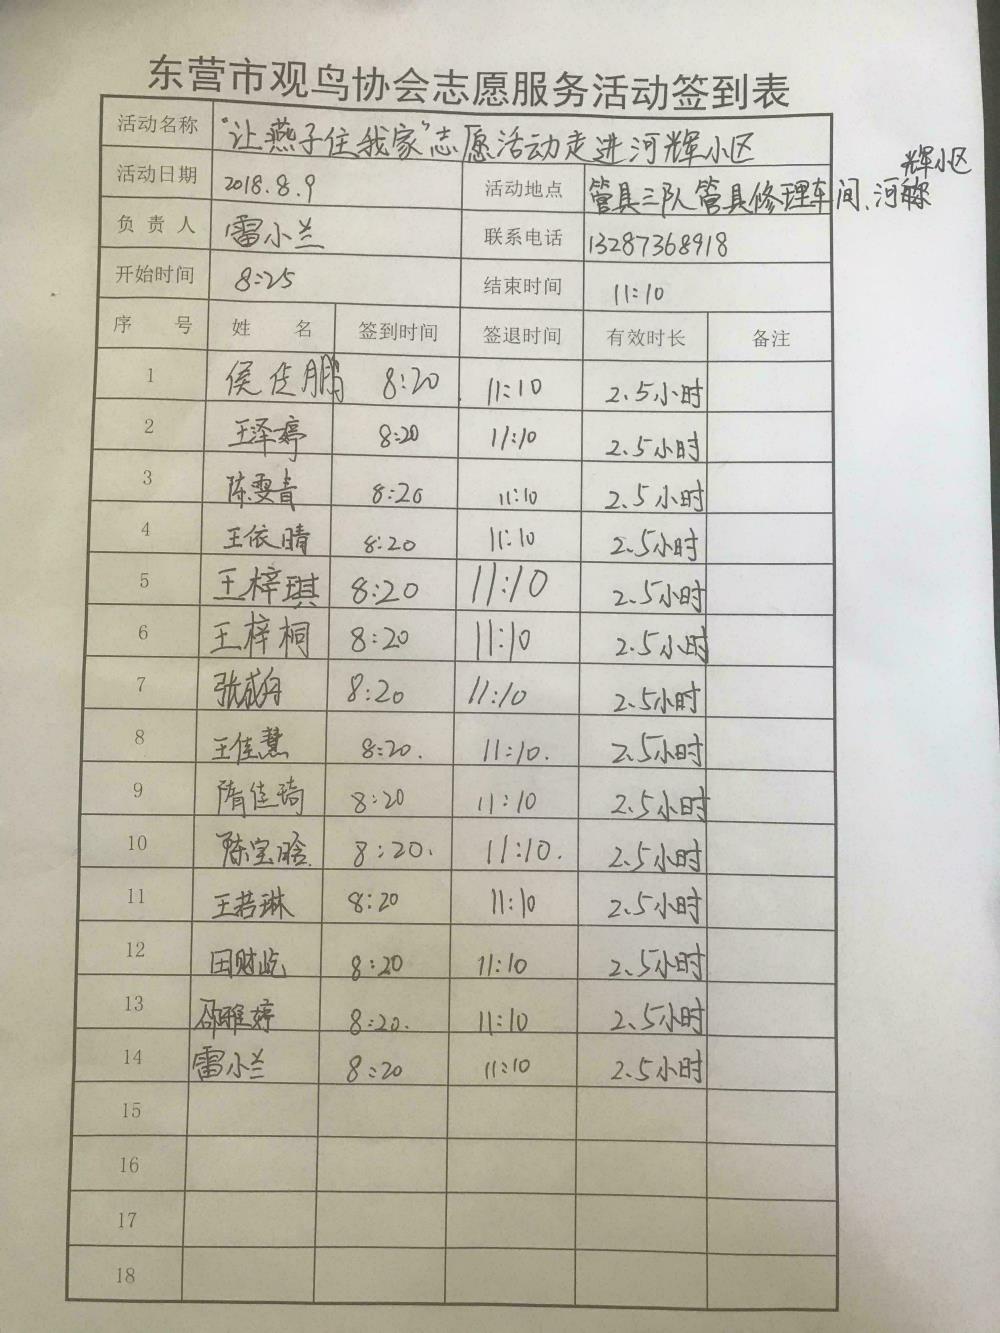 东营市观鸟协会志愿服务活动签到表
活动名称 “让燕子住我家”志愿活动走进河辉小区
活动日期 2018.8.9 活动地点 管具三队管具修理车间、河辉小区
负责人 雷小兰 联系电话 13287368918
开始时间 8:25 结束时间 11:10
序号 姓名 签到时间 签退时间 有效时长 备注
1 侯佳鹏 8:20 11:10 2.5小时
2 王泽婷 8:20 11:10 2.5小时
3 陈雯青 8:20 11:10 2.5小时
4 王依晴 8:20 11:10 2.5小时
5 王梓琪 8:20 11:10 2.5小时
6 王梓桐 8:20 11:10 2.5小时
7 8:20 11:10 2.5小时
8 王佳慧 8:20. 11:10. 2.5小时
9 隋佳琦 8:20 11:10 2.5小时
10 陈宝晗. 8:20. 11:10. 2.5小时
11 王若琳 8:20 11:10 2.5小时
12 田财屹 8:20 11:10 2.5小时
13 邵雅婷 8:20. 11:10 2.5小时
14 雷小兰 8:20 11:10 2.5小时
15
16
17
18